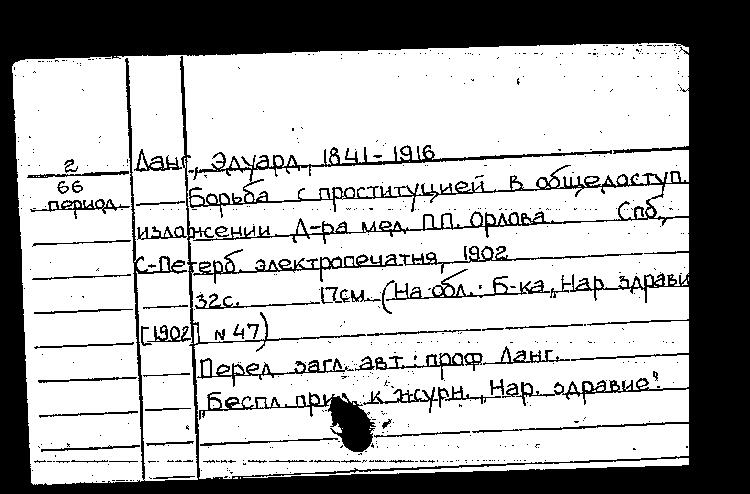 2 Ланг, Эдуард, 1841-1916
66 Борьба с проституцией в общедоступ.
период. изложении Д-ра мед. П.П. Орлова. Спб.,
С-Петерб. электропечатня, 1902
32с. 17см. (На обл.: Б-ка „Нар здрави
[1902] N 47)
Перед загл. авт.: проф Ланг.
„Беспл. прил. к журн. „Нар. здравие".